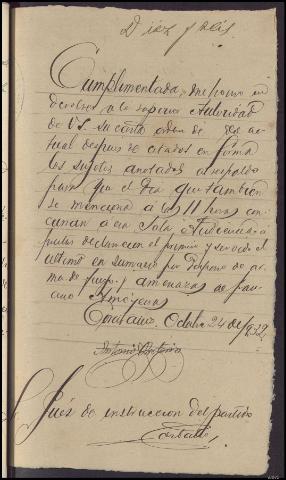 Diez y seis
Cumplimentada, me
devolver, a la superior Autoridad
de V.S. su carta orden de
tual despues de citados en forma
los sujetos anotados a respaldo
para que el dia que tambien
se menciona á las 11 horas con
á esa Sala Audiencia á
el primero y
ultimo en sumario por disparo de ar
ma de fuego y amenazas de
Octubre 24 de 1932,
Antonio
Sr. Juez de instruccion del partido
Carballo,